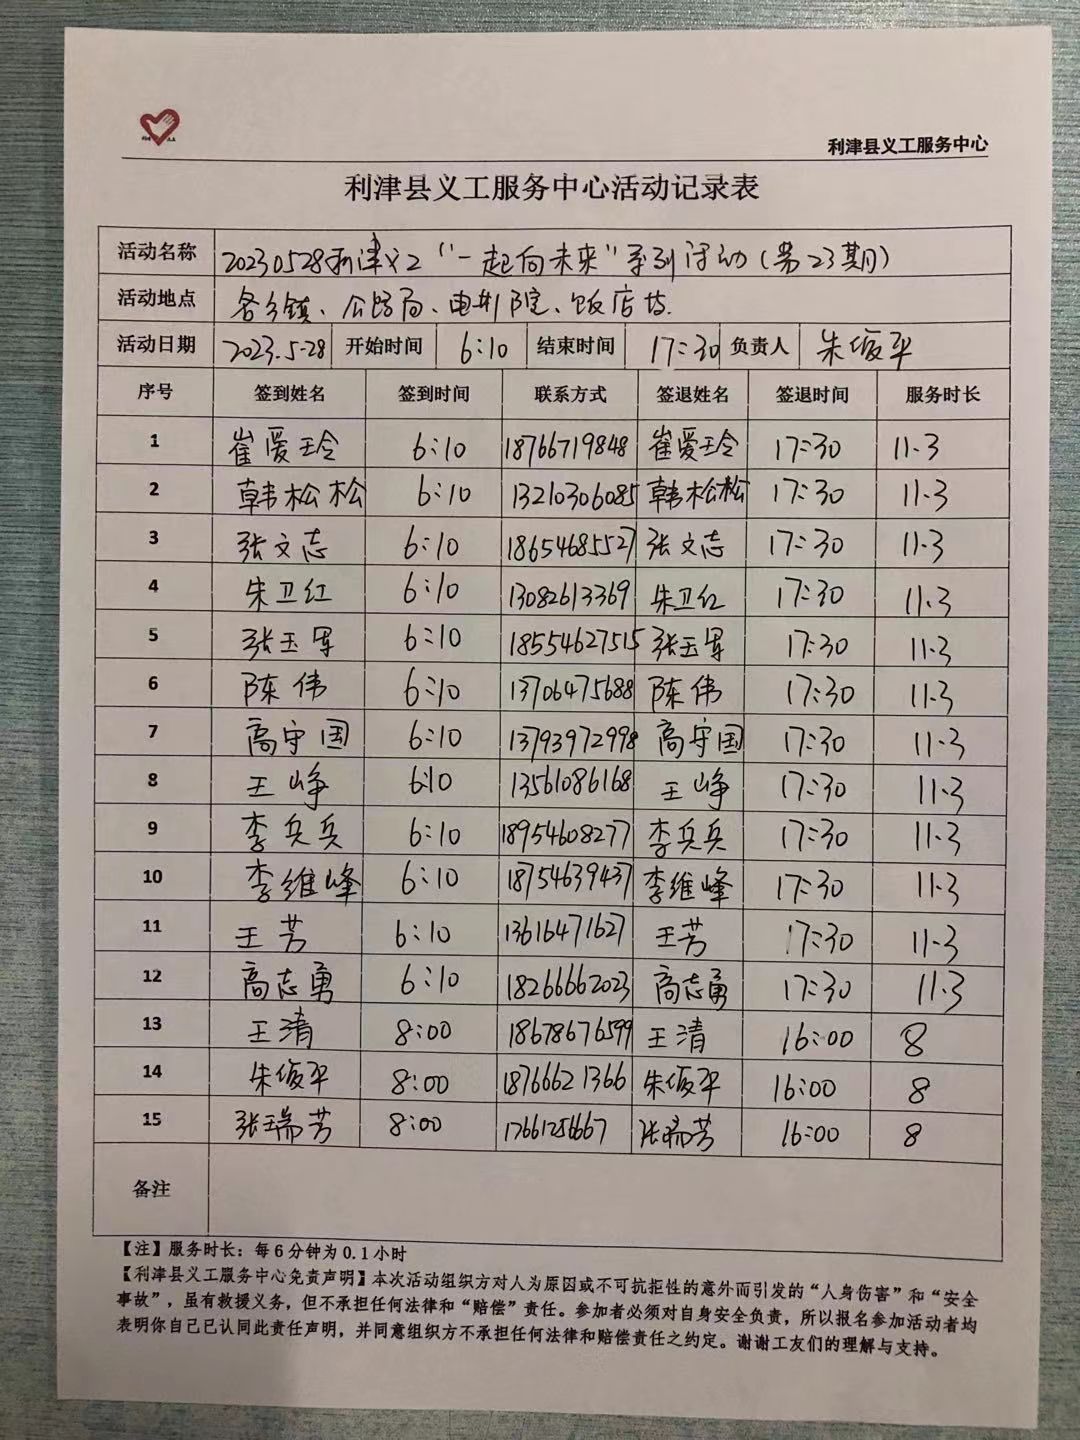 利津县义工服务中心
利津县义工服务中心活动记录表
活动名称 20230528利津义工“一起向未来”系列活动(第23期)
活动地点 各乡镇、公路局、电影院、饭店等.
活动日期 2023.5-28 开始时间 6:10 结束时间 17:30 负责人 朱俊平
序号 签到姓名 签到时间 联系方式 签退姓名 签退时间 服务时长
1 崔爱玲 6:10 18766719848 崔爱玲 17:30 11.3
2 韩松松 6:10 13210306085 韩松松 17:30 11.3
3 张文志 6:10 18654685527 张文志 17:30 11.3
4 朱卫红 6:10 13082613369 朱卫红 17:30 11.3
5 张玉军 6:10 18554627515 张玉军 17:30 11.3
6 陈伟 6:10 13706475688 陈伟 17:30 11.3
7 高守国 6:10 13793972998 高守国 17:30 11.3
8 王峥 6:10 13561086168 王峥 17:30 11.3
9 李兵兵 6:10 18954608277 李兵兵 17:30 11.3
10 李维峰 6:10 18754639437 李维峰 17:30 11.3
11 王芳 6:10 13616471627 王芳 17:30 11.3
12 高志勇 6:10 18266662023 高志勇 17:30 11.3
13 王清 8:00 18678676599 王清 16:00 8
14 朱俊平 8:00 18766621366 朱俊平 16:00 8
15 张瑞芳 8:00 17661256667 张瑞芳 16:00 8
备注
【注】服务时长：每6分钟为0.1小时
【利津县义工服务中心免责声明】本次活动组织方对人为原因或不可抗拒性的意外而引发的“人身伤害”和“安全
事故”，虽有救援义务，但不承担任何法律和“赔偿”责任。参加者必须对自身安全负责，所以报名参加活动者均
表明你自己已认同此责任声明，并同意组织方不承担任何法律和赔偿责任之约定。谢谢工友们的理解与支持。